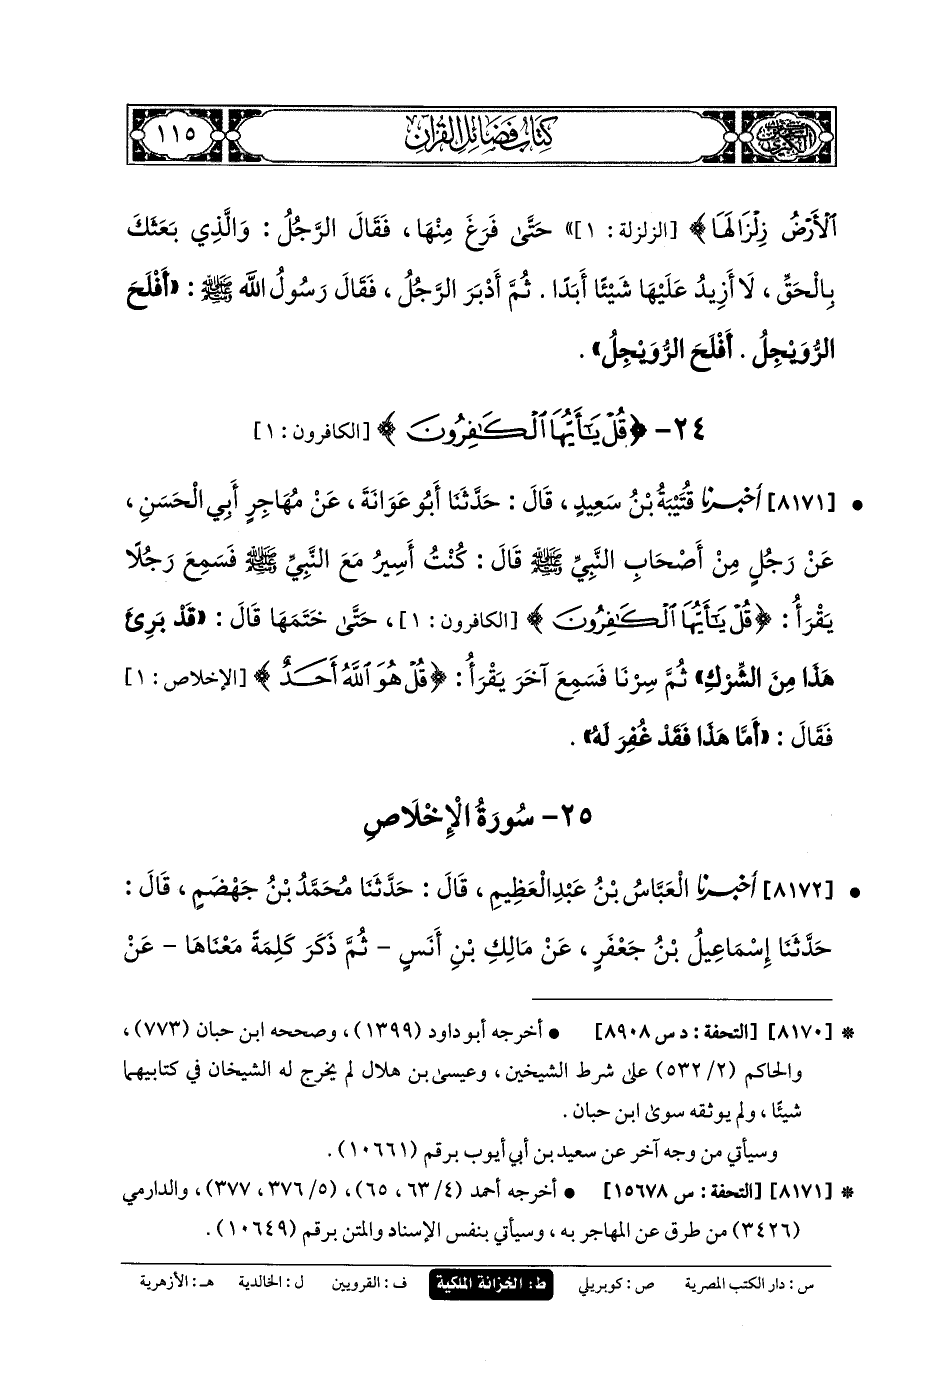 السنن الكبرى كتاب فضائل القرآن ١١٥
ٱلْأَرْضُ زِلْزَالَهَا﴾ [الزلزلة: ١]» حَتَّىٰ فَرَغَ مِنْهَا، فَقَالَ الرَّجُلُ: وَالَّذِي بَعَثَكَ
بِالْحَقِّ، لَا أَزِيدُ عَلَيْهَا شَيْئًا أَبَدًا. ثُمَّ أَدْبَرَ الرَّجُلُ، فَقَالَ رَسُولُ اللَّهِ ﷺ: «أَفْلَحَ
الرُّوَيْجِلُ. أَفْلَحَ الرُّوَيْجِلُ».
٢٤- ﴿قُلْ يَٰٓأَيُّهَا ٱلْكَٰفِرُونَ﴾ [الكافرون: ١]
• [٨١٧١] أخبرنا قُتَيْبَةُ بْنُ سَعِيدٍ، قَالَ: حَدَّثَنَا أَبُو عَوَانَةَ، عَنْ مُهَاجِرٍ أَبِي الْحَسَنِ،
عَنْ رَجُلٍ مِنْ أَصْحَابِ النَّبِيِّ ﷺ قَالَ: كُنْتُ أَسِيرُ مَعَ النَّبِيِّ ﷺ فَسَمِعَ رَجُلًا
يَقْرَأُ: ﴿قُلْ يَٰٓأَيُّهَا ٱلْكَٰفِرُونَ﴾ [الكافرون: ١]، حَتَّىٰ خَتَمَهَا قَالَ: «قَدْ بَرِئَ
هَذَا مِنَ الشِّرْكِ» ثُمَّ سِرْنَا فَسَمِعَ آخَرَ يَقْرَأُ: ﴿قُلْ هُوَ ٱللَّهُ أَحَدٌ﴾ [الإخلاص: ١]
فَقَالَ: «أَمَّا هَذَا فَقَدْ غُفِرَ لَهُ».
٢٥- سُورَةُ الْإِخْلَاصِ
• [٨١٧٢] أخبرنا الْعَبَّاسُ بْنُ عَبْدِالْعَظِيمِ، قَالَ: حَدَّثَنَا مُحَمَّدُ بْنُ جَهْضَمٍ، قَالَ:
حَدَّثَنَا إِسْمَاعِيلُ بْنُ جَعْفَرٍ، عَنْ مَالِكِ بْنِ أَنَسٍ - ثُمَّ ذَكَرَ كَلِمَةً مَعْنَاهَا - عَنْ
* [٨١٧٠] [التحفة: د س ٨٩٠٨] • أخرجه أبو داود (١٣٩٩)، وصححه ابن حبان (٧٧٣)،
والحاكم (٢/ ٥٣٢) على شرط الشيخين، وعيسىٰ بن هلال لم يخرج له الشيخان في كتابيهما
شيئًا، ولم يوثقه سوىٰ ابن حبان.
وسيأتي من وجه آخر عن سعيد بن أبي أيوب برقم (١٠٦٦١).
* [٨١٧١] [التحفة: س ١٥٦٧٨] • أخرجه أحمد (٤/ ٦٣، ٦٥)، (٥/ ٣٧٦، ٣٧٧)، والدارمي
(٣٤٢٦) من طرق عن المهاجر به، وسيأتي بنفس الإسناد والمتن برقم (١٠٦٤٩).
س: دار الكتب المصرية ص: كوبريلي ط: الخزانة الملكية ف: القرويين ل: الخالدية هـ: الأزهرية